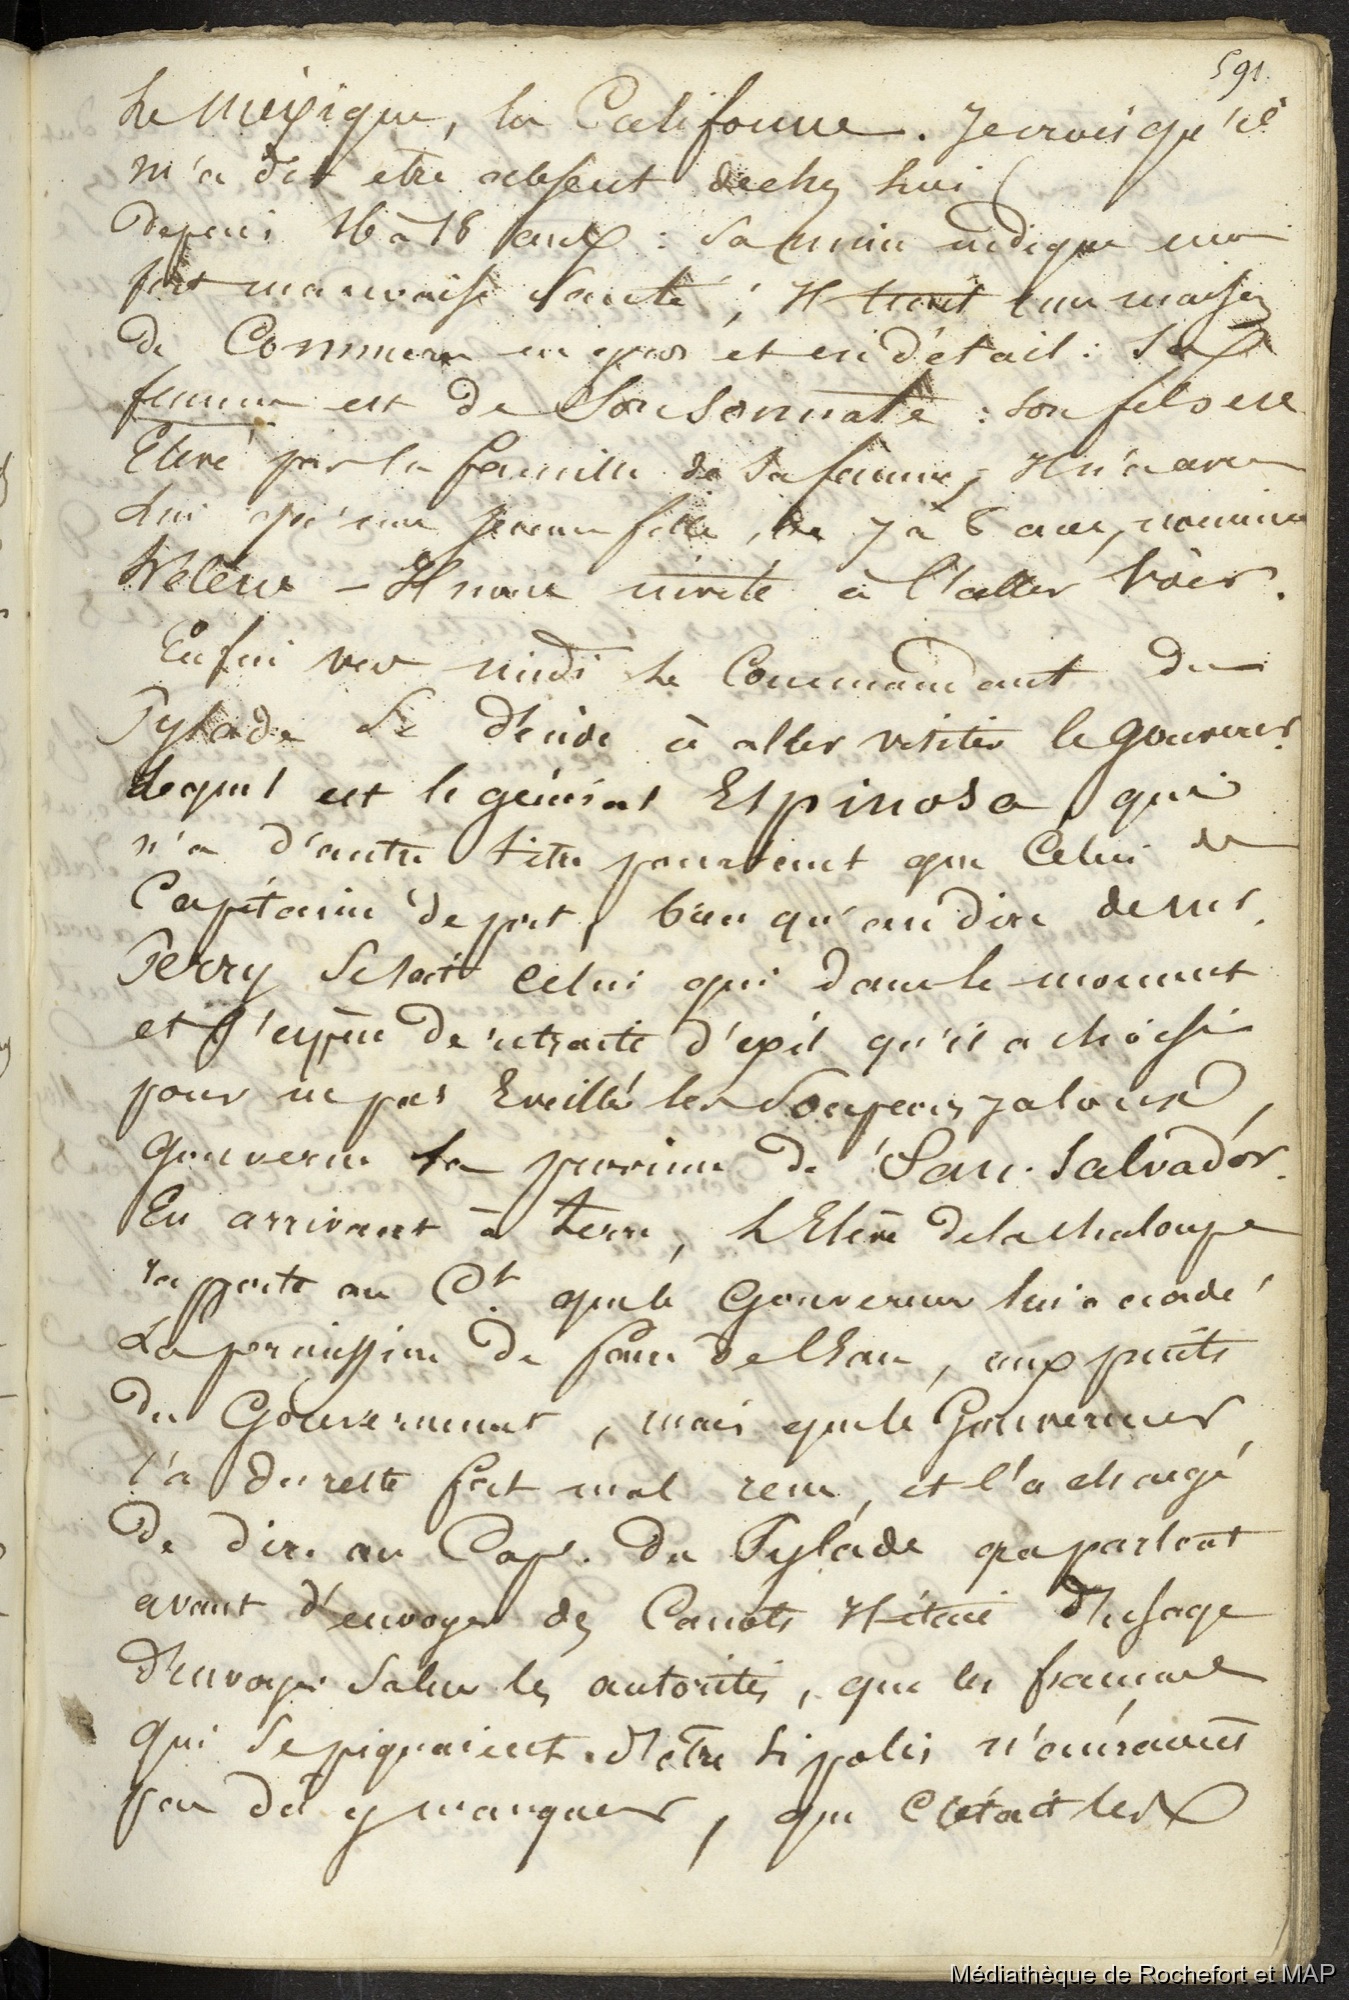 591.
Le Mexique, la Californie. Je crois qu'il
m'a dit etre absent de chez lui
depuis 16 à 18 ans : Sa mine indique une
fort mauvaise Santé ; Il tient une maison
de Commerce en gros et en détail : Sa
femme est de Sonsonnate : Son fils est
Elevé par la famille de Sa femme, Il n'a avec
Lui qu'une jeune fille, de 7 à 8 ans, nommée
Hélène - Il nous invite à l'aller Voir.
Enfin vers midi le Commandant du
Pylade Se décide à aller visiter le gouverneur.
Lequel est le général Espinosa, qui
n'a d'autre titre pourtant que Celui de
Capitaine de port, bien qu'au dire de Mr.
Perry Se Soit Celui qui dans le moment
et l'espèce de retraite d'exil qu'il a choisi
pour ne pas Eveillé les Soupçons jaloux,
gouverne la province de San-Salvador.
En arrivant à terre, L'Elève de la chaloupe
rapporte au Ct. que le Gouverneur lui a accordé
La permission de faire de l'Eau, aux puits
du Gouvernement, mais que le Gouverneur
l'a du reste fort mal reçu, et l'a chargé
De dire au Cape. Du Pylade que partout
avant d'envoyer des Canots Il était d'usage
d'Envoyer Saluer les autorités, que les français
qui Se piquaient d'être Si polis n'auraient
pas dû y manquer, que C'était les
Médiathèque de Rochefort et MAP